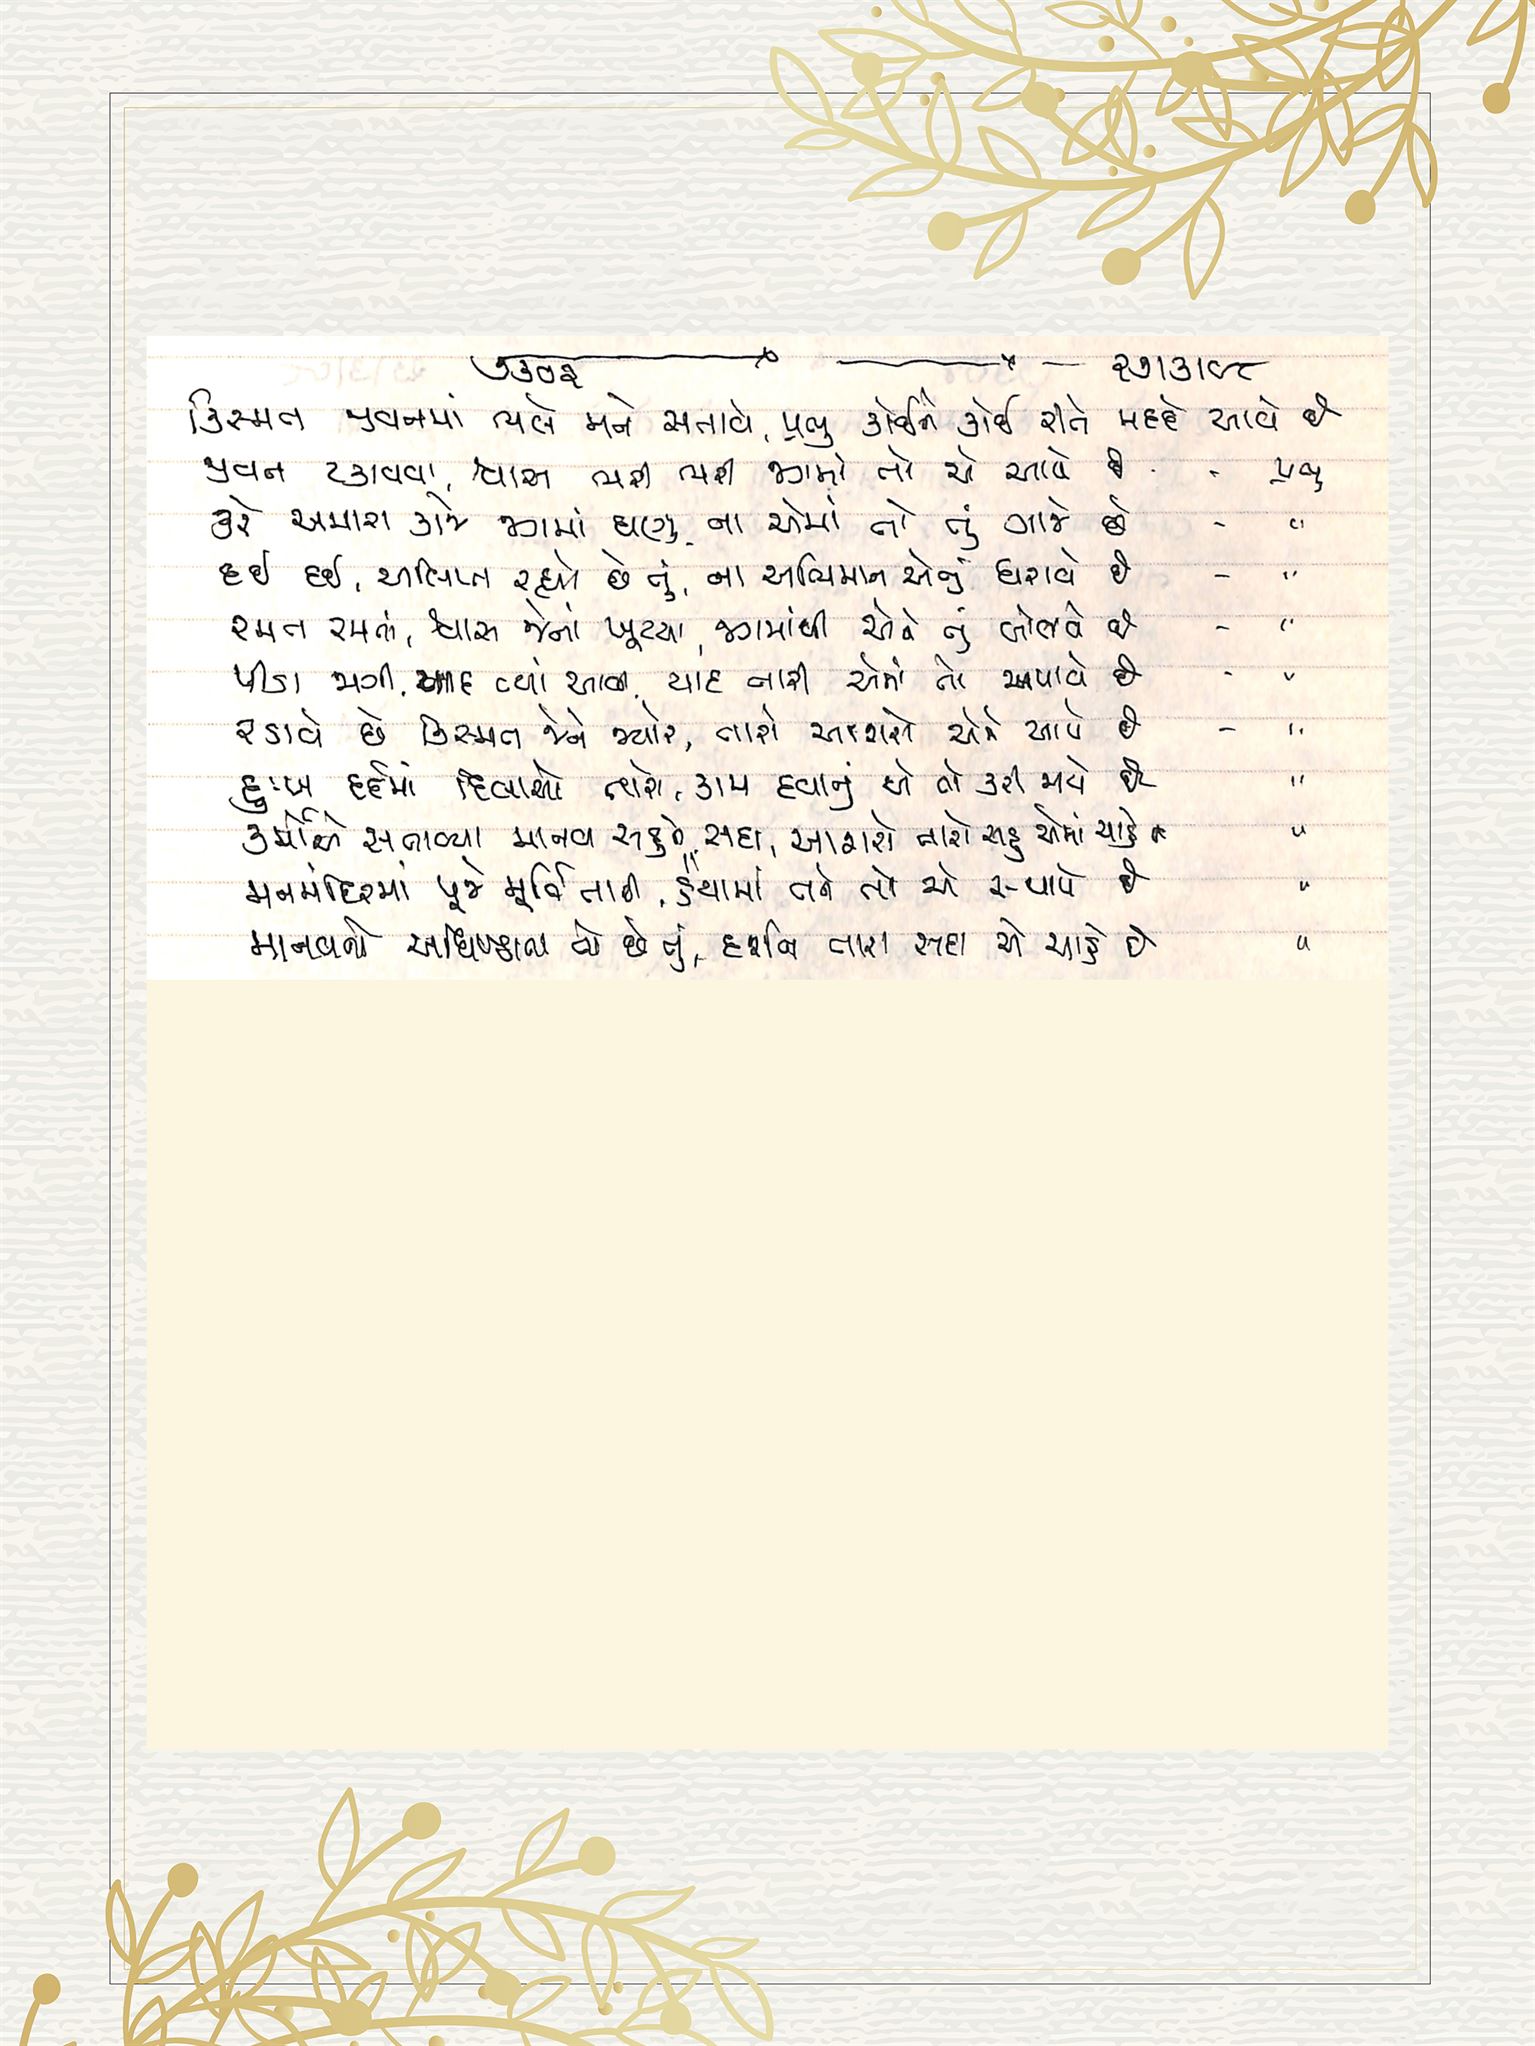 ૭૩૦૨ ૨૭।૩।૯૮
કિસ્મત જીવનમાં ભલે મને સતાવે, પ્રભુ કોઈને કોઈ રીતે મદદે આવે છે
જીવન ટકાવવા, શ્વાસ ભરી ભરી જગમાં તો એ આપે છે - પ્રભુ
કરે અમારા કાજે જગમાં ઘણું ના એમાં તો તું ગાજે છે - "
દઈ દઈ, અલિપ્ત રહ્યો છે તું, ના અભિમાન એનું ધરાવે છે - "
રમત રમતાં, શ્વાસ જેનાં ખૂટયા, જગમાંથી એને તું બોલાવે છે - "
પીડા જાગી, યાદ ત્યાં આવી, યાદ તારી એમાં તો અપાવે છે - "
રડાવે છે કિસ્મત જેને જ્યારે, તારો આશરો એને આપે છે - "
દુઃખ દર્દમાં દિલાસો તારો, કામ દવાનું એ તો કરી જાયે છે "
કર્મોએ સતાવ્યા માનવ સહુને, સદા, આશરો તારો સહુ એમાં ચાહે છે "
મનમંદિરમાં પૂજે મૂર્તિ તારી, હૈયામાં તને તો એ સ્થાપે છે "
માનવનો અધિષ્ઠાતા તો છે તું, દર્શન તારા સદા એ ચાહે છે "